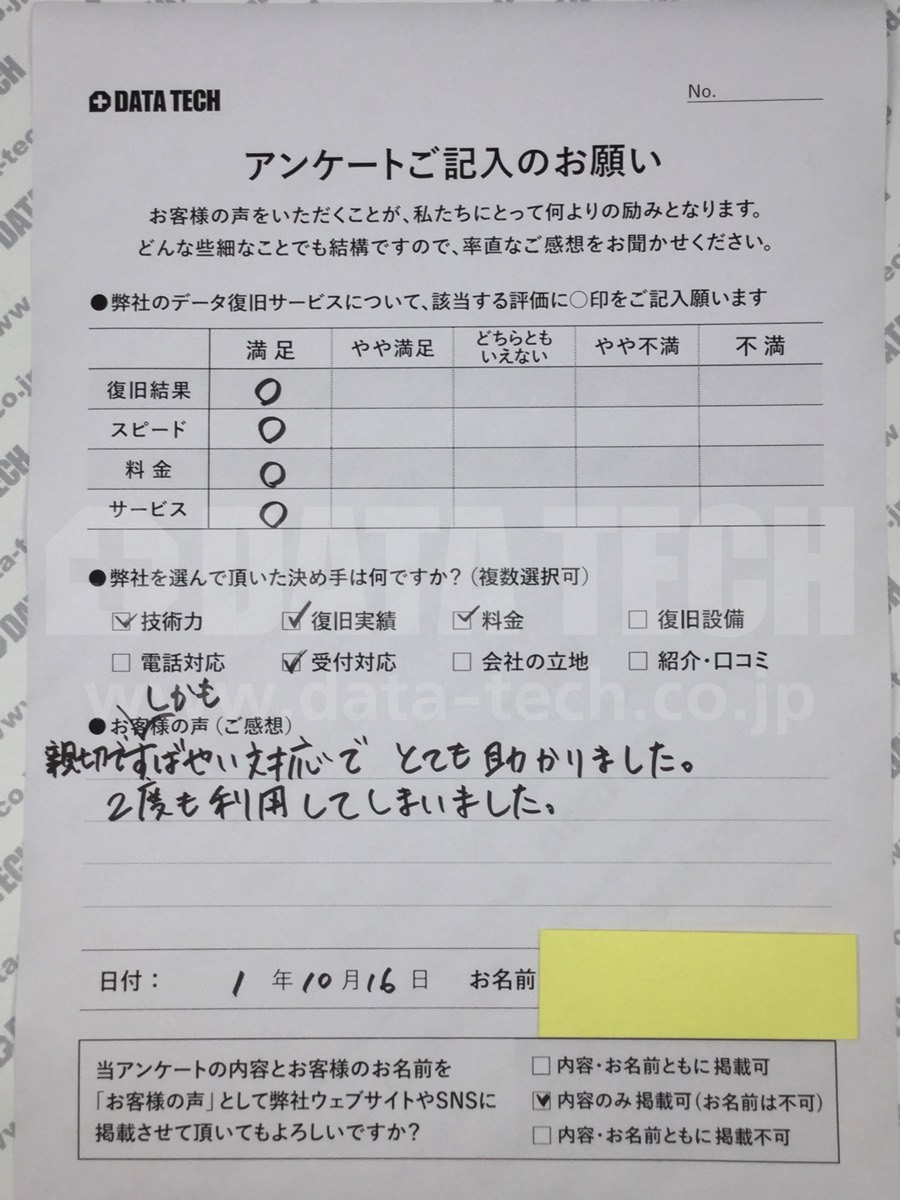 DATA TECH
No.
アンケートご記入のお願い
お客様の声をいただくことが、私たちにとって何よりの励みとなります。
どんな些細なことでも結構ですので、率直なご感想をお聞かせください。
●弊社のデータ復旧サービスについて、該当する評価に○印をご記入願います
満足 やや満足 どちらとも いえない やや不満 不満
復旧結果 ○
スピード ○
料金 ○
サービス ○
DATA TECH
●弊社を選んで頂いた決め手は何ですか?(複数選択可)
☑技術力 ☑復旧実績 ☑料金 □復旧設備
□電話対応 ☑受付対応 □会社の立地 □紹介・口コミ
www.data-tech.co.jp
しかも
●お客様の声(ご感想)
親切ですばやい対応で とても助かりました。
2度も利用してしまいました。
日付: 1年10月16日 お名前
当アンケートの内容とお客様のお名前を
「お客様の声」として弊社ウェブサイトやSNSに
掲載させて頂いてもよろしいですか?
□内容・お名前ともに掲載可
☑内容のみ掲載可(お名前は不可)
□内容・お名前ともに掲載不可